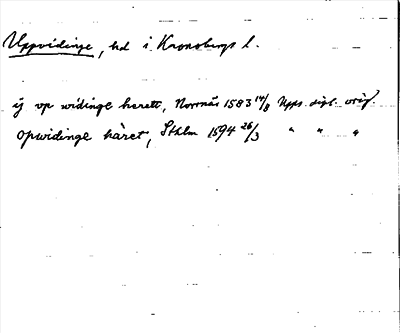 Uppvidinge, hd i Kronobergs l.
ÿ vp widinge herett, Norrnäs 1583 14/8 Upps. dipl. orig.
Opwidinge häret, Sthlm 1594 26/3 " " "